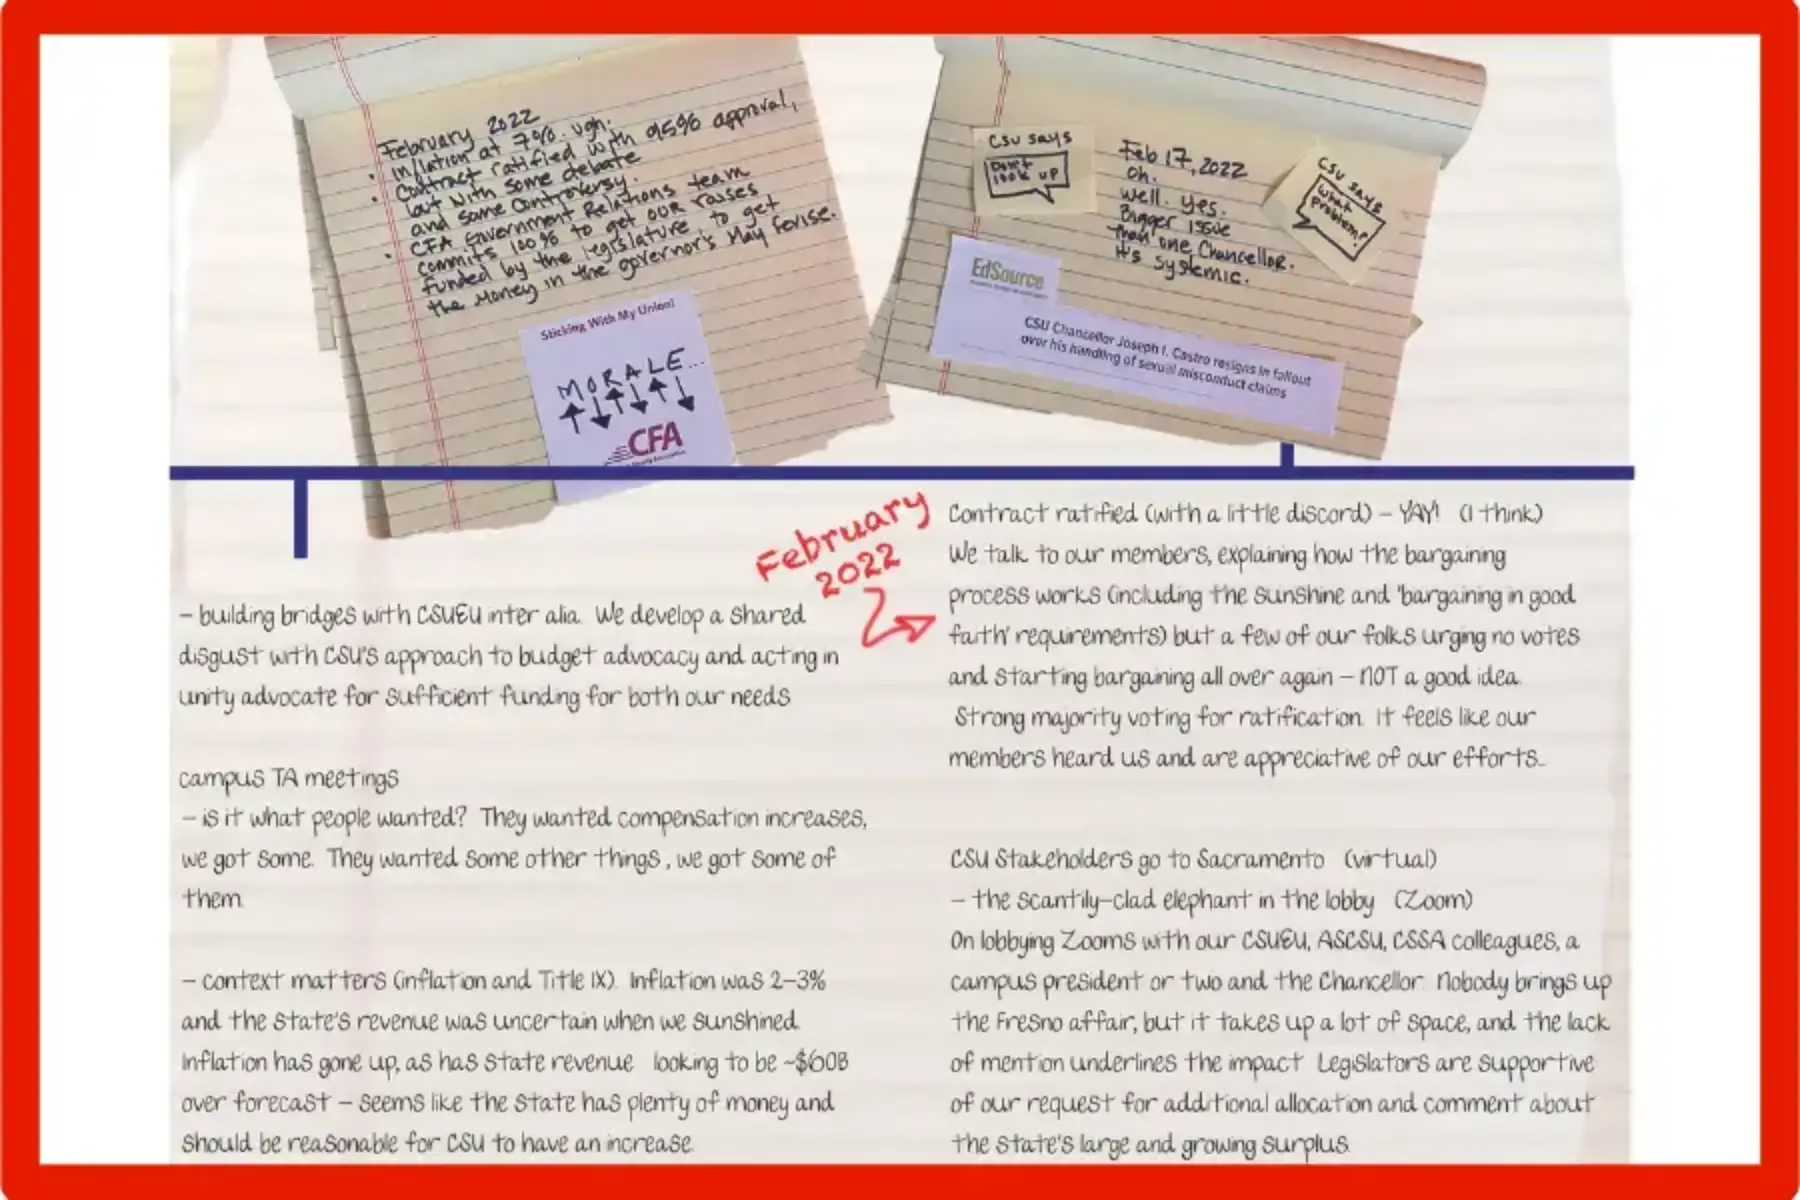 February 2022
• Inflation at 7%. Ugh.
• Contract ratified with 95% approval,
but with some debate
and some controversy.
• CFA Government Relations team
commits 100% to get our raises
funded by the legislature to get
the money in the governor's May revise.
Sticking With My Union!
MORALE...
CFA
CSU says
Don't
look up
Feb 17, 2022
Oh.
Well. Yes.
Bigger issue
than one Chancellor.
It's systemic.
CSU says
What
problem?
EdSource
CSU Chancellor Joseph I. Castro resigns in fallout
over his handling of sexual misconduct claims
– building bridges with CSUEU inter alia. We develop a shared
disgust with CSU's approach to budget advocacy and acting in
unity advocate for sufficient funding for both our needs
campus TA meetings
– is it what people wanted? They wanted compensation increases,
we got some. They wanted some other things, we got some of
them.
– context matters (inflation and Title IX). Inflation was 2–3%
and the state's revenue was uncertain when we sunshined.
Inflation has gone up, as has state revenue looking to be ~$60B
over forecast – seems like the state has plenty of money and
should be reasonable for CSU to have an increase.
February
2022
Contract ratified (with a little discord) – YAY! (I think)
We talk to our members, explaining how the bargaining
process works (including the sunshine and 'bargaining in good
faith' requirements) but a few of our folks urging no votes
and starting bargaining all over again – NOT a good idea.
Strong majority voting for ratification. It feels like our
members heard us and are appreciative of our efforts...
CSU Stakeholders go to Sacramento (virtual)
– the scantily-clad elephant in the lobby (Zoom)
On lobbying Zooms with our CSUEU, ASCSU, CSSA colleagues, a
campus president or two and the Chancellor. Nobody brings up
the Fresno affair, but it takes up a lot of space, and the lack
of mention underlines the impact. Legislators are supportive
of our request for additional allocation and comment about
the state's large and growing surplus.